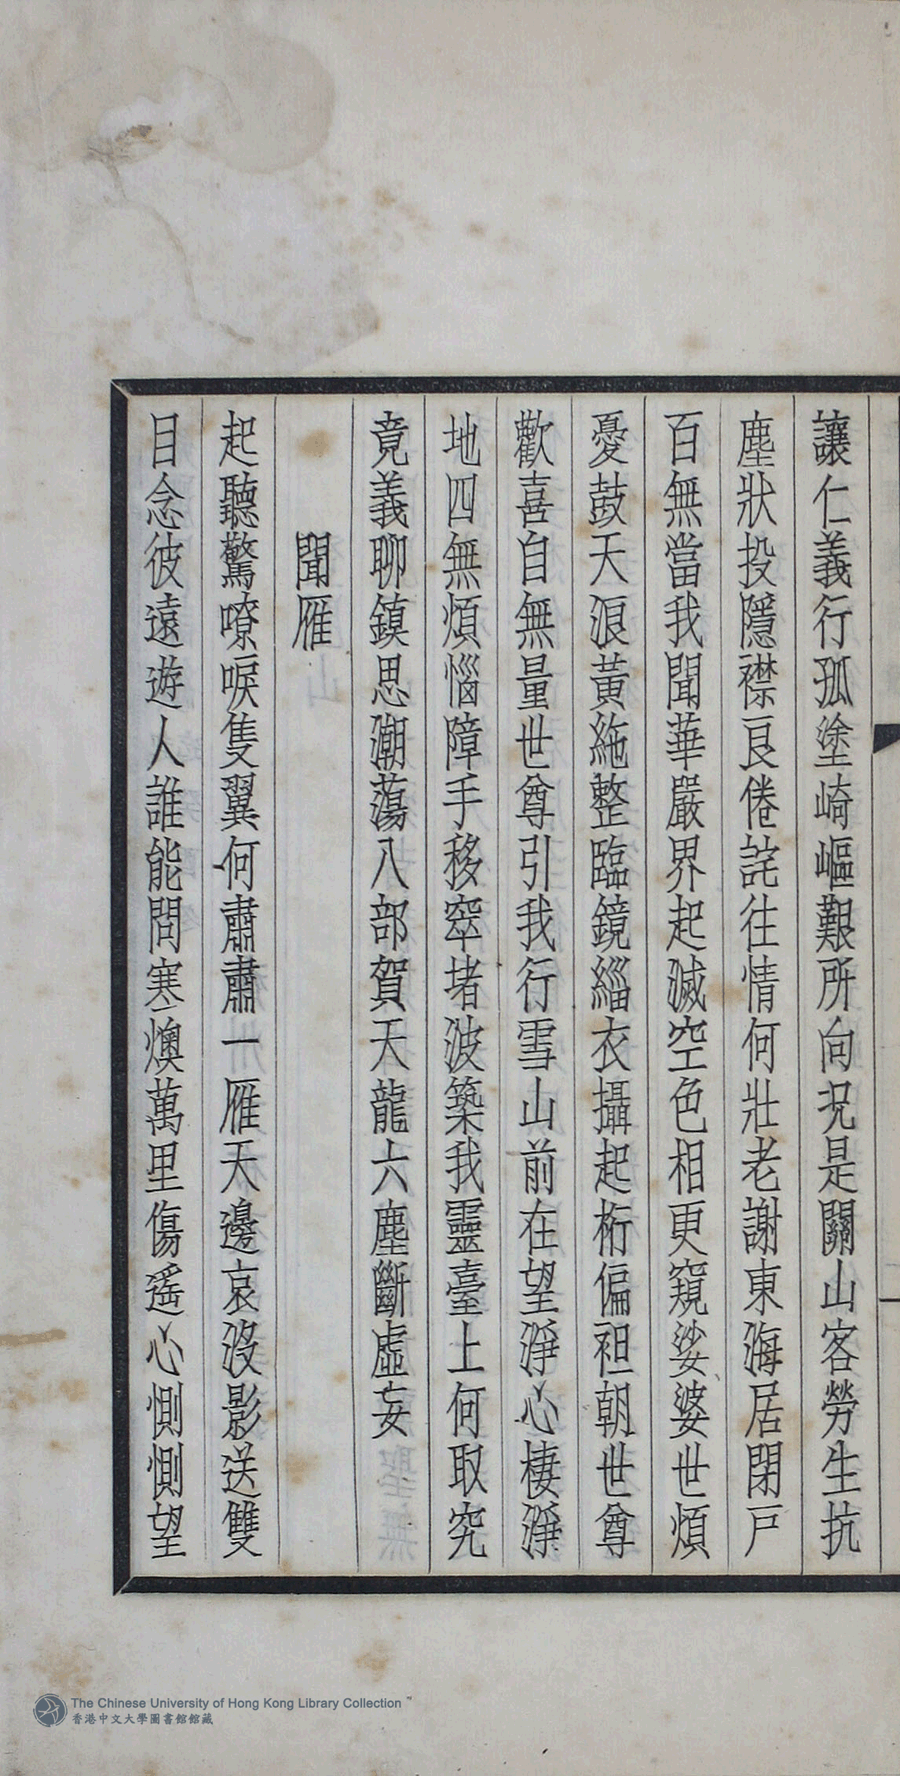 讓仁義行孤塗崎嶇艱所向況是關山客勞生抗
塵狀投隱襟良倦詫往情何壯老謝東海居閉戶
百無當我聞華嚴界起滅空色相更窺娑婆世煩
憂鼓天浪黃絁整臨鏡緇衣攝起桁偏袒朝世尊
歡喜自無量世尊引我行雪山前在望淨心棲淨
地四無煩惱障手移窣堵波築我靈臺上何取究
竟義聊鎮思潮蕩八部賀天龍六塵斷虛妄
聞雁
起聽驚嘹唳隻翼何肅肅一雁天邊哀沒影送雙
目念彼遠遊人誰能問寒燠萬里傷遥心惻惻望
The Chinese University of Hong Kong Library Collection ™
香港中文大學圖書館館藏